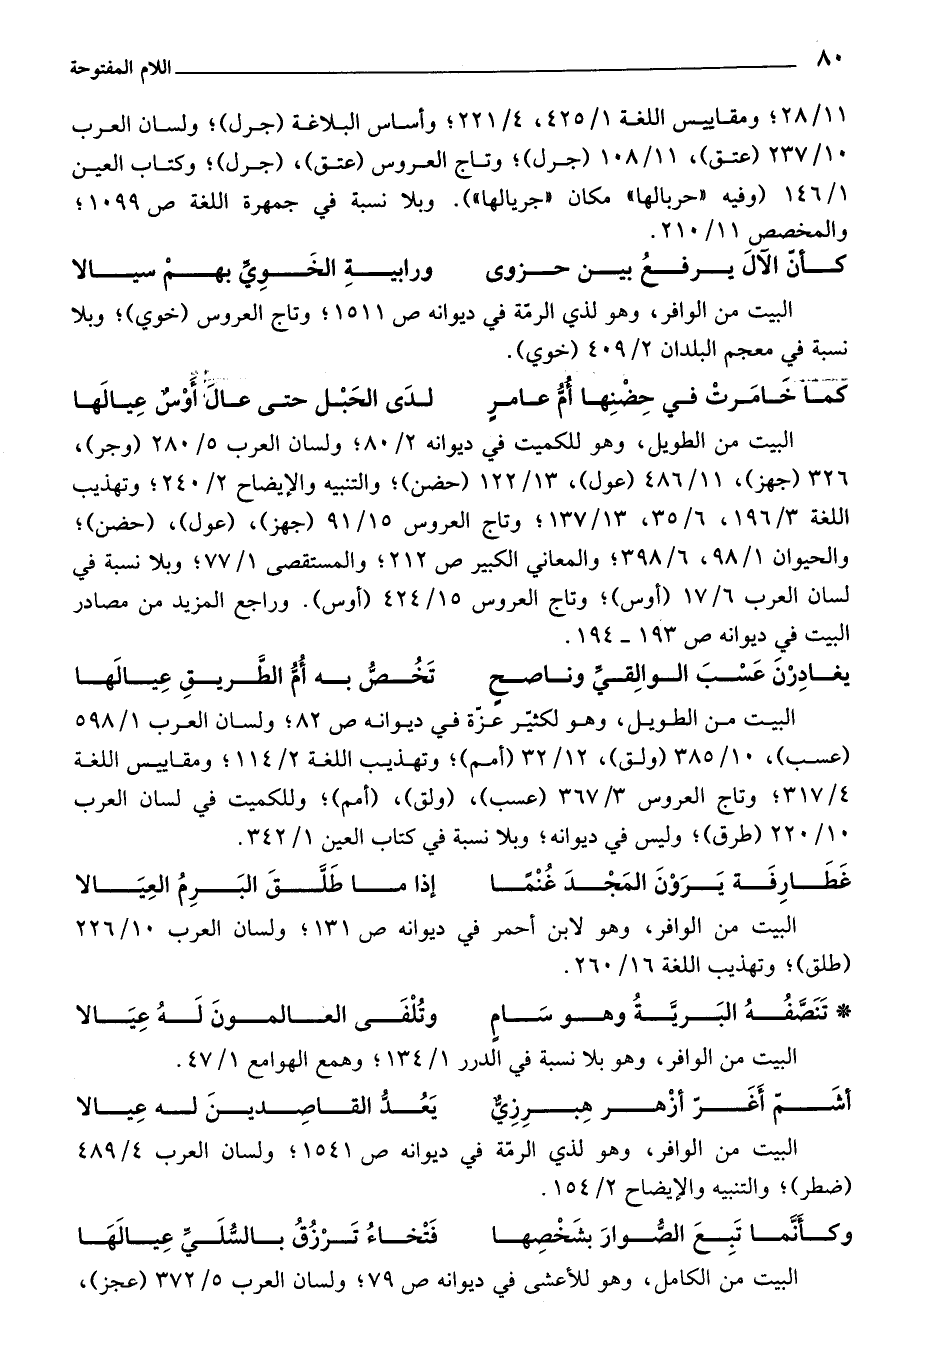 ٨٠ اللام المفتوحة
٢٨/١١؛ ومقاييس اللغة ٤٢٥/١، ٢٢١/٤؛ وأساس البلاغة (جرل)؛ ولسان العرب
٢٣٧/١٠ (عتق)، ١٠٨/١١ (جرل)؛ وتاج العروس (عتق)، (جرل)؛ وكتاب العين
١٤٦/١ (وفيه «حربالها» مكان «جريالها»). وبلا نسبة في جمهرة اللغة ص ١٠٩٩؛
والمخصص ٢١٠/١١.
كـأنّ الآلَ يـرفـعُ بيـن حـزوى ورابيـةِ الخَـويِّ بهـمْ سيـالا
البيت من الوافر، وهو لذي الرمّة في ديوانه ص ١٥١١؛ وتاج العروس (خوي)؛ وبلا
نسبة في معجم البلدان ٤٠٩/٢ (خوي).
كمـا خَـامَـرتْ فـي حِضْنِهـا أُمُّ عـامـرٍ لـدَى الحَبْـل حتـى عـالَ أَوْسٌ عِيـالَهـا
البيت من الطويل، وهو للكميت في ديوانه ٨٠/٢؛ ولسان العرب ٢٨٠/٥ (وجر)،
٣٢٦ (جهز)، ٤٨٦/١١ (عول)، ١٢٢/١٣ (حضن)؛ والتنبيه والإيضاح ٢٤٠/٢؛ وتهذيب
اللغة ١٩٦/٣، ٣٥/٦، ١٣٧/١٣؛ وتاج العروس ٩١/١٥ (جهز)، (عول)، (حضن)؛
والحيوان ٩٨/١، ٣٩٨/٦؛ والمعاني الكبير ص ٢١٢؛ والمستقصى ٧٧/١؛ وبلا نسبة في
لسان العرب ١٧/٦ (أوس)؛ وتاج العروس ٤٢٤/١٥ (أوس). وراجع المزيد من مصادر
البيت في ديوانه ص ١٩٣ ـ ١٩٤.
يغـادِرْنَ عَسْـبَ الـوالِقـيِّ ونـاصـحٍ تَخُـصُّ بـه أُمُّ الطَّـريـقِ عِيـالَهـا
البيـت مـن الطويـل، وهـو لكثيّـر عـزّة فـي ديوانـه ص ٨٢؛ ولسان العـرب ٥٩٨/١
(عسـب)، ٣٨٥/١٠ (ولـق)، ٣٢/١٢ (أمـم)؛ وتهـذيـب اللغـة ١١٤/٢؛ ومقـاييس اللغـة
٣١٧/٤؛ وتاج العروس ٣٦٧/٣ (عسب)، (ولق)، (أمم)؛ وللكميت في لسان العرب
٢٢٠/١٠ (طرق)؛ وليس في ديوانه؛ وبلا نسبة في كتاب العين ٣٤٢/١.
غَطَـارِفَـة يَـرَوْنَ المَجْـدَ غُنْمًـا إذا مـا طَلَّـقَ البَـرِمُ العِيَـالا
البيت من الوافر، وهو لابن أحمر في ديوانه ص ١٣١؛ ولسان العرب ٢٢٦/١٠
(طلق)؛ وتهذيب اللغة ٢٦٠/١٦.
* تَنَصَّفُـهُ البَـريَّـةُ وهـو سَـامٍ وتُلْفَـى العـالمـونَ لَـهُ عِيَـالا
البيت من الوافر، وهو بلا نسبة في الدرر ١٣٤/١؛ وهمع الهوامع ٤٧/١.
أشَـمّ أَغَـرّ أزْهـر هِبـرِزِيٌّ يَعُـدُّ القـاصِـديـنَ لـه عِيـالا
البيت من الوافر، وهو لذي الرمّة في ديوانه ص ١٥٤١؛ ولسان العرب ٤٨٩/٤
(ضطر)؛ والتنبيه والإيضاح ١٥٤/٢.
وكـأنَّمـا تَبِـعَ الصُّـوارَ بشَخْصِهـا فَتْخـاءُ تَـرْزُقُ بـالسُّلَـيِّ عِيـالَهـا
البيت من الكامل، وهو للأعشى في ديوانه ص ٧٩؛ ولسان العرب ٣٧٢/٥ (عجز)،